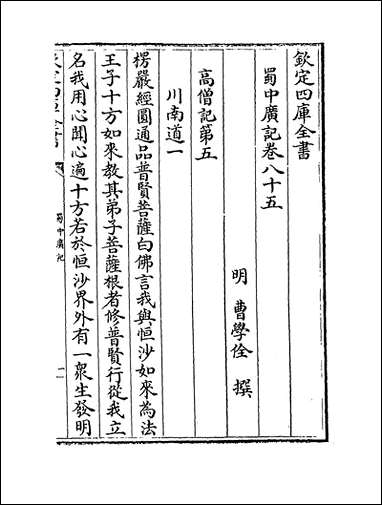 欽定四庫全書
蜀中廣記卷八十五
明 曹學佺 撰
高僧記第五
川南道一
楞嚴經圓通品普賢菩薩白佛言我與恒沙如來為法
王子十方如來教其弟子菩薩根者修普賢行從我立
名我用心聞心遍十方若於恒沙界外有一衆生發明
欽定四庫全書
蜀中廣記